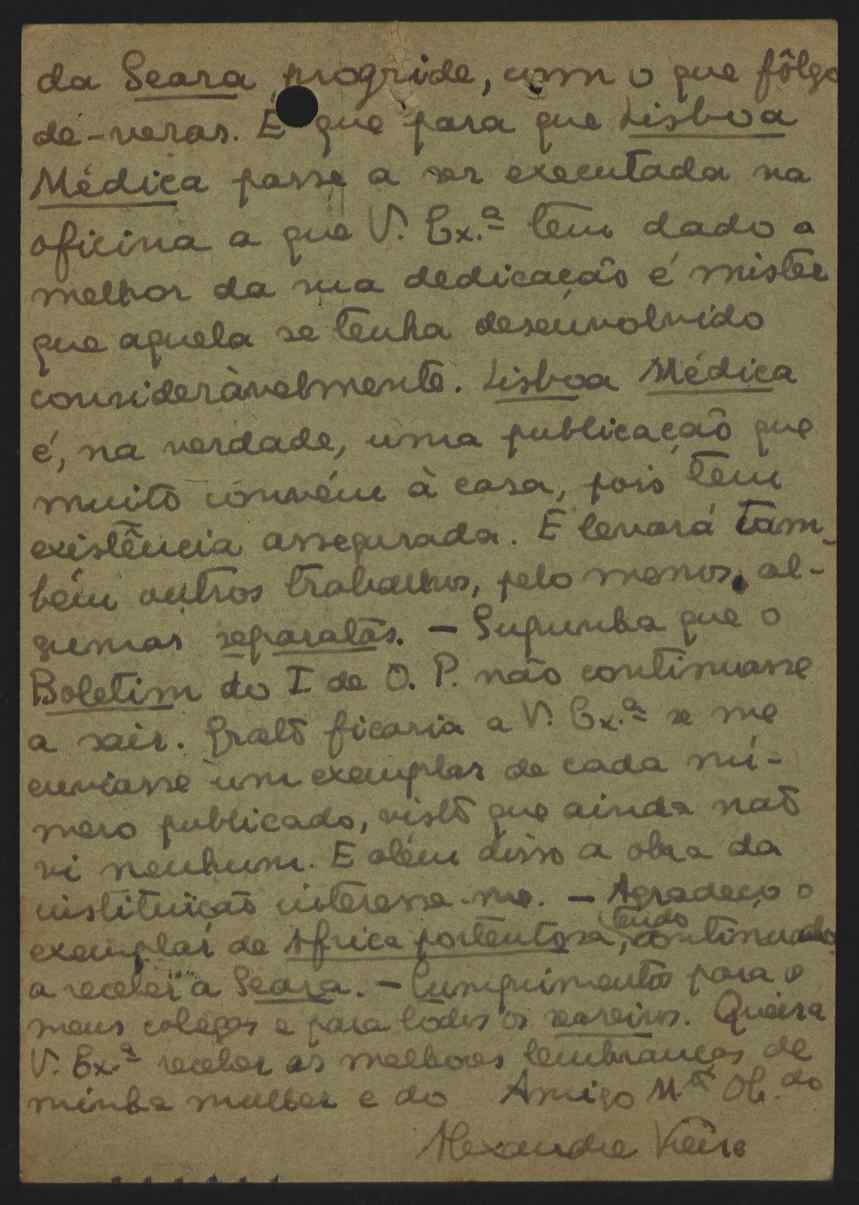 da Seara progride, com o que fôlgo
de-veras. E que para que Lisboa
Médica passe a ser executada na
oficina a que V. Ex.ª tem dado o
melhor da sua dedicação é mister
que aquela se tenha desenvolvido
consideràvelmente. Lisboa Médica
é, na verdade, uma publicação que
muito convém à casa, pois tem
existência assegurada. E levará tam-
bém outros trabalhos, pelo menos, al-
gumas separatas. — Supunha que o
Boletim do I de O. P. não continuasse
a sair. Grato ficaria a V. Ex.ª se me
enviasse um exemplar de cada nú-
mero publicado, visto que ainda não
vi nenhum. E além disso a obra da
instituição interessa-me. — Agradeço o
exemplar de Africa portentosa, tendo continuado
a receber a Seara. — Cumprimentos para os
meus colegas e para todos os seareiros. Queira
V. Ex.ª receber as melhores lembranças de
minha mulher e do Amigo M.tº Ob.do
Alexandre Vieira